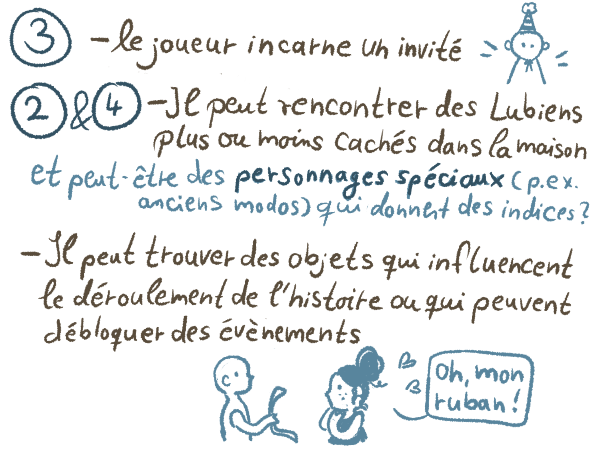 ③ – le joueur incarne un invité
② & ④ – Il peut rencontrer des Lubiens
plus ou moins cachés dans la maison
et peut-être des personnages spéciaux (p.ex.
anciens modos) qui donnent des indices?
– Il peut trouver des objets qui influencent
le déroulement de l'histoire ou qui peuvent
débloquer des évènements
Oh, mon
ruban!